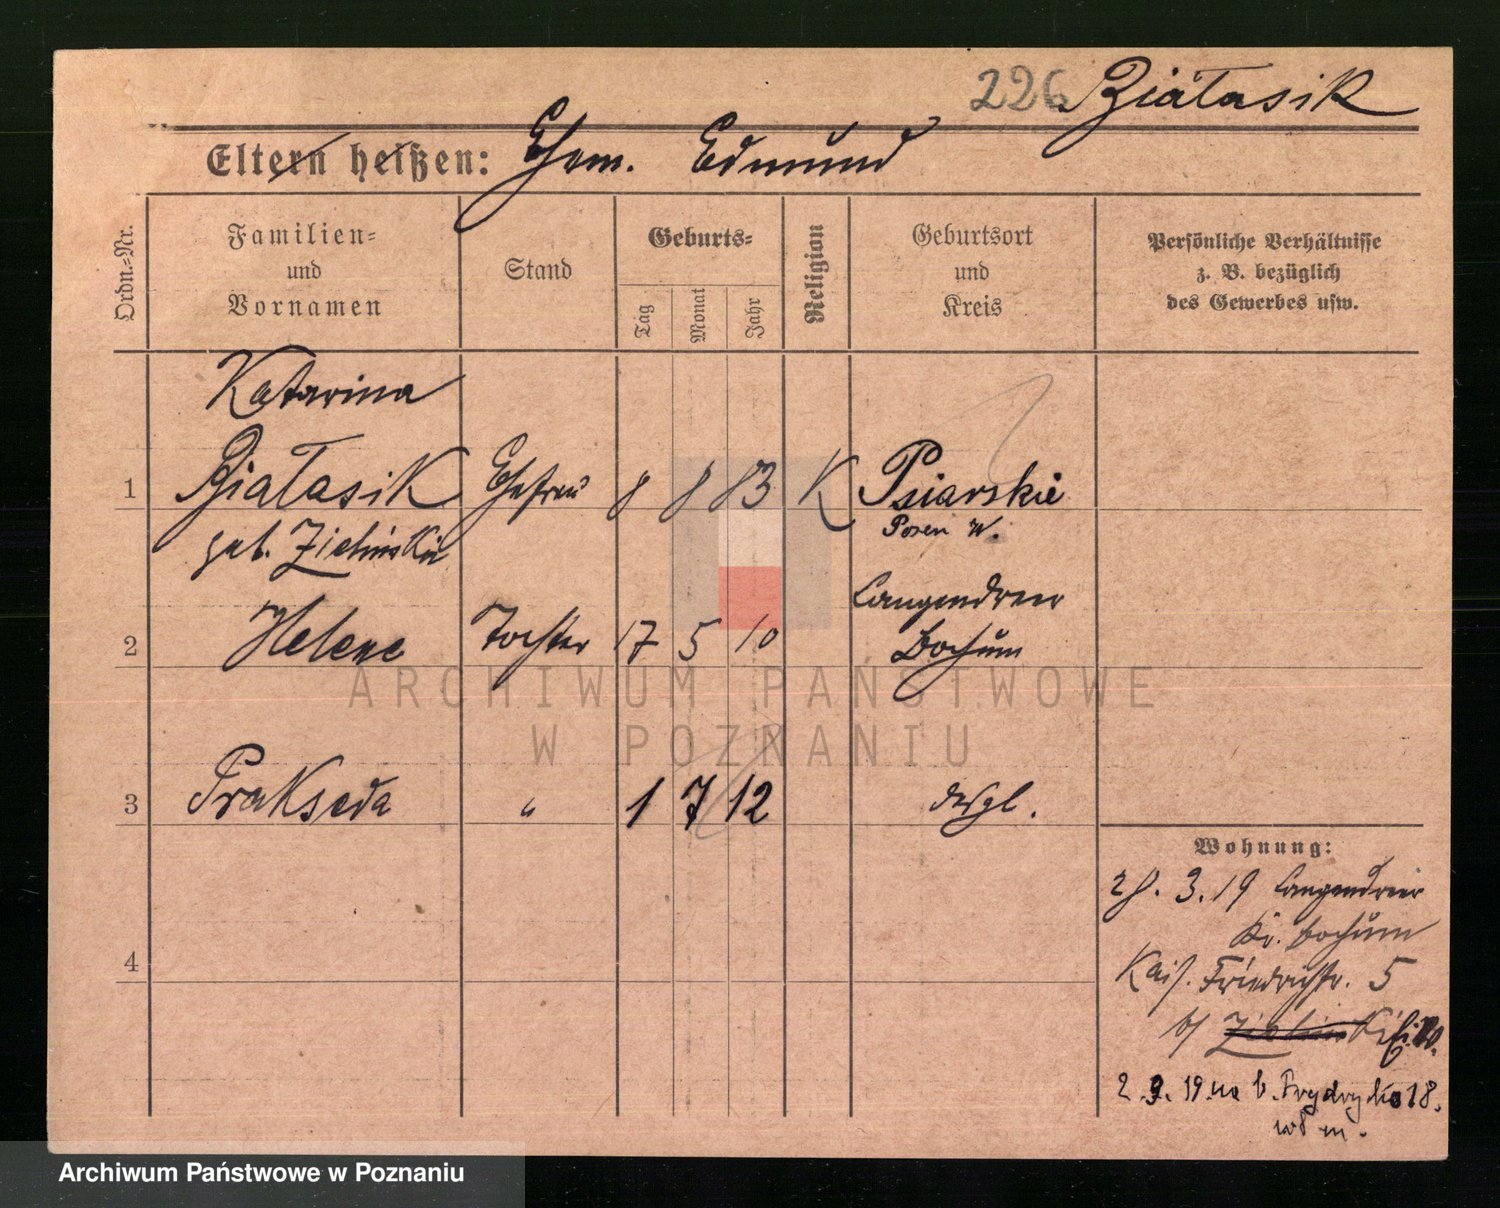 226 Białasik
Eltern heißen: Ehem. Edmund
Ordn.-Nr.
Familien-
und
Vornamen
Stand
Geburts-
Tag
Monat
Jahr
Religion
Geburtsort
und
Kreis
Persönliche Verhältnisse
z. B. bezüglich
des Gewerbes usw.
Katarina
1 Białasik Ehefrau 8 8 83 K Psiarskie
geb. Zielinskie Posen W.
Langendreer
2 Helene Tochter 17 5 10 Bochum
ARCHIWUM PAŃSTWOWE
W POZNANIU
3 Prakseda " 1 7 12 desgl.
Wohnung:
28. 3. 19 Langendreer
Kr. Bochum
4
Kais. Friedrichstr. 5
b/
2. 9. 19. na b. 18.
Archiwum Państwowe w Poznaniu